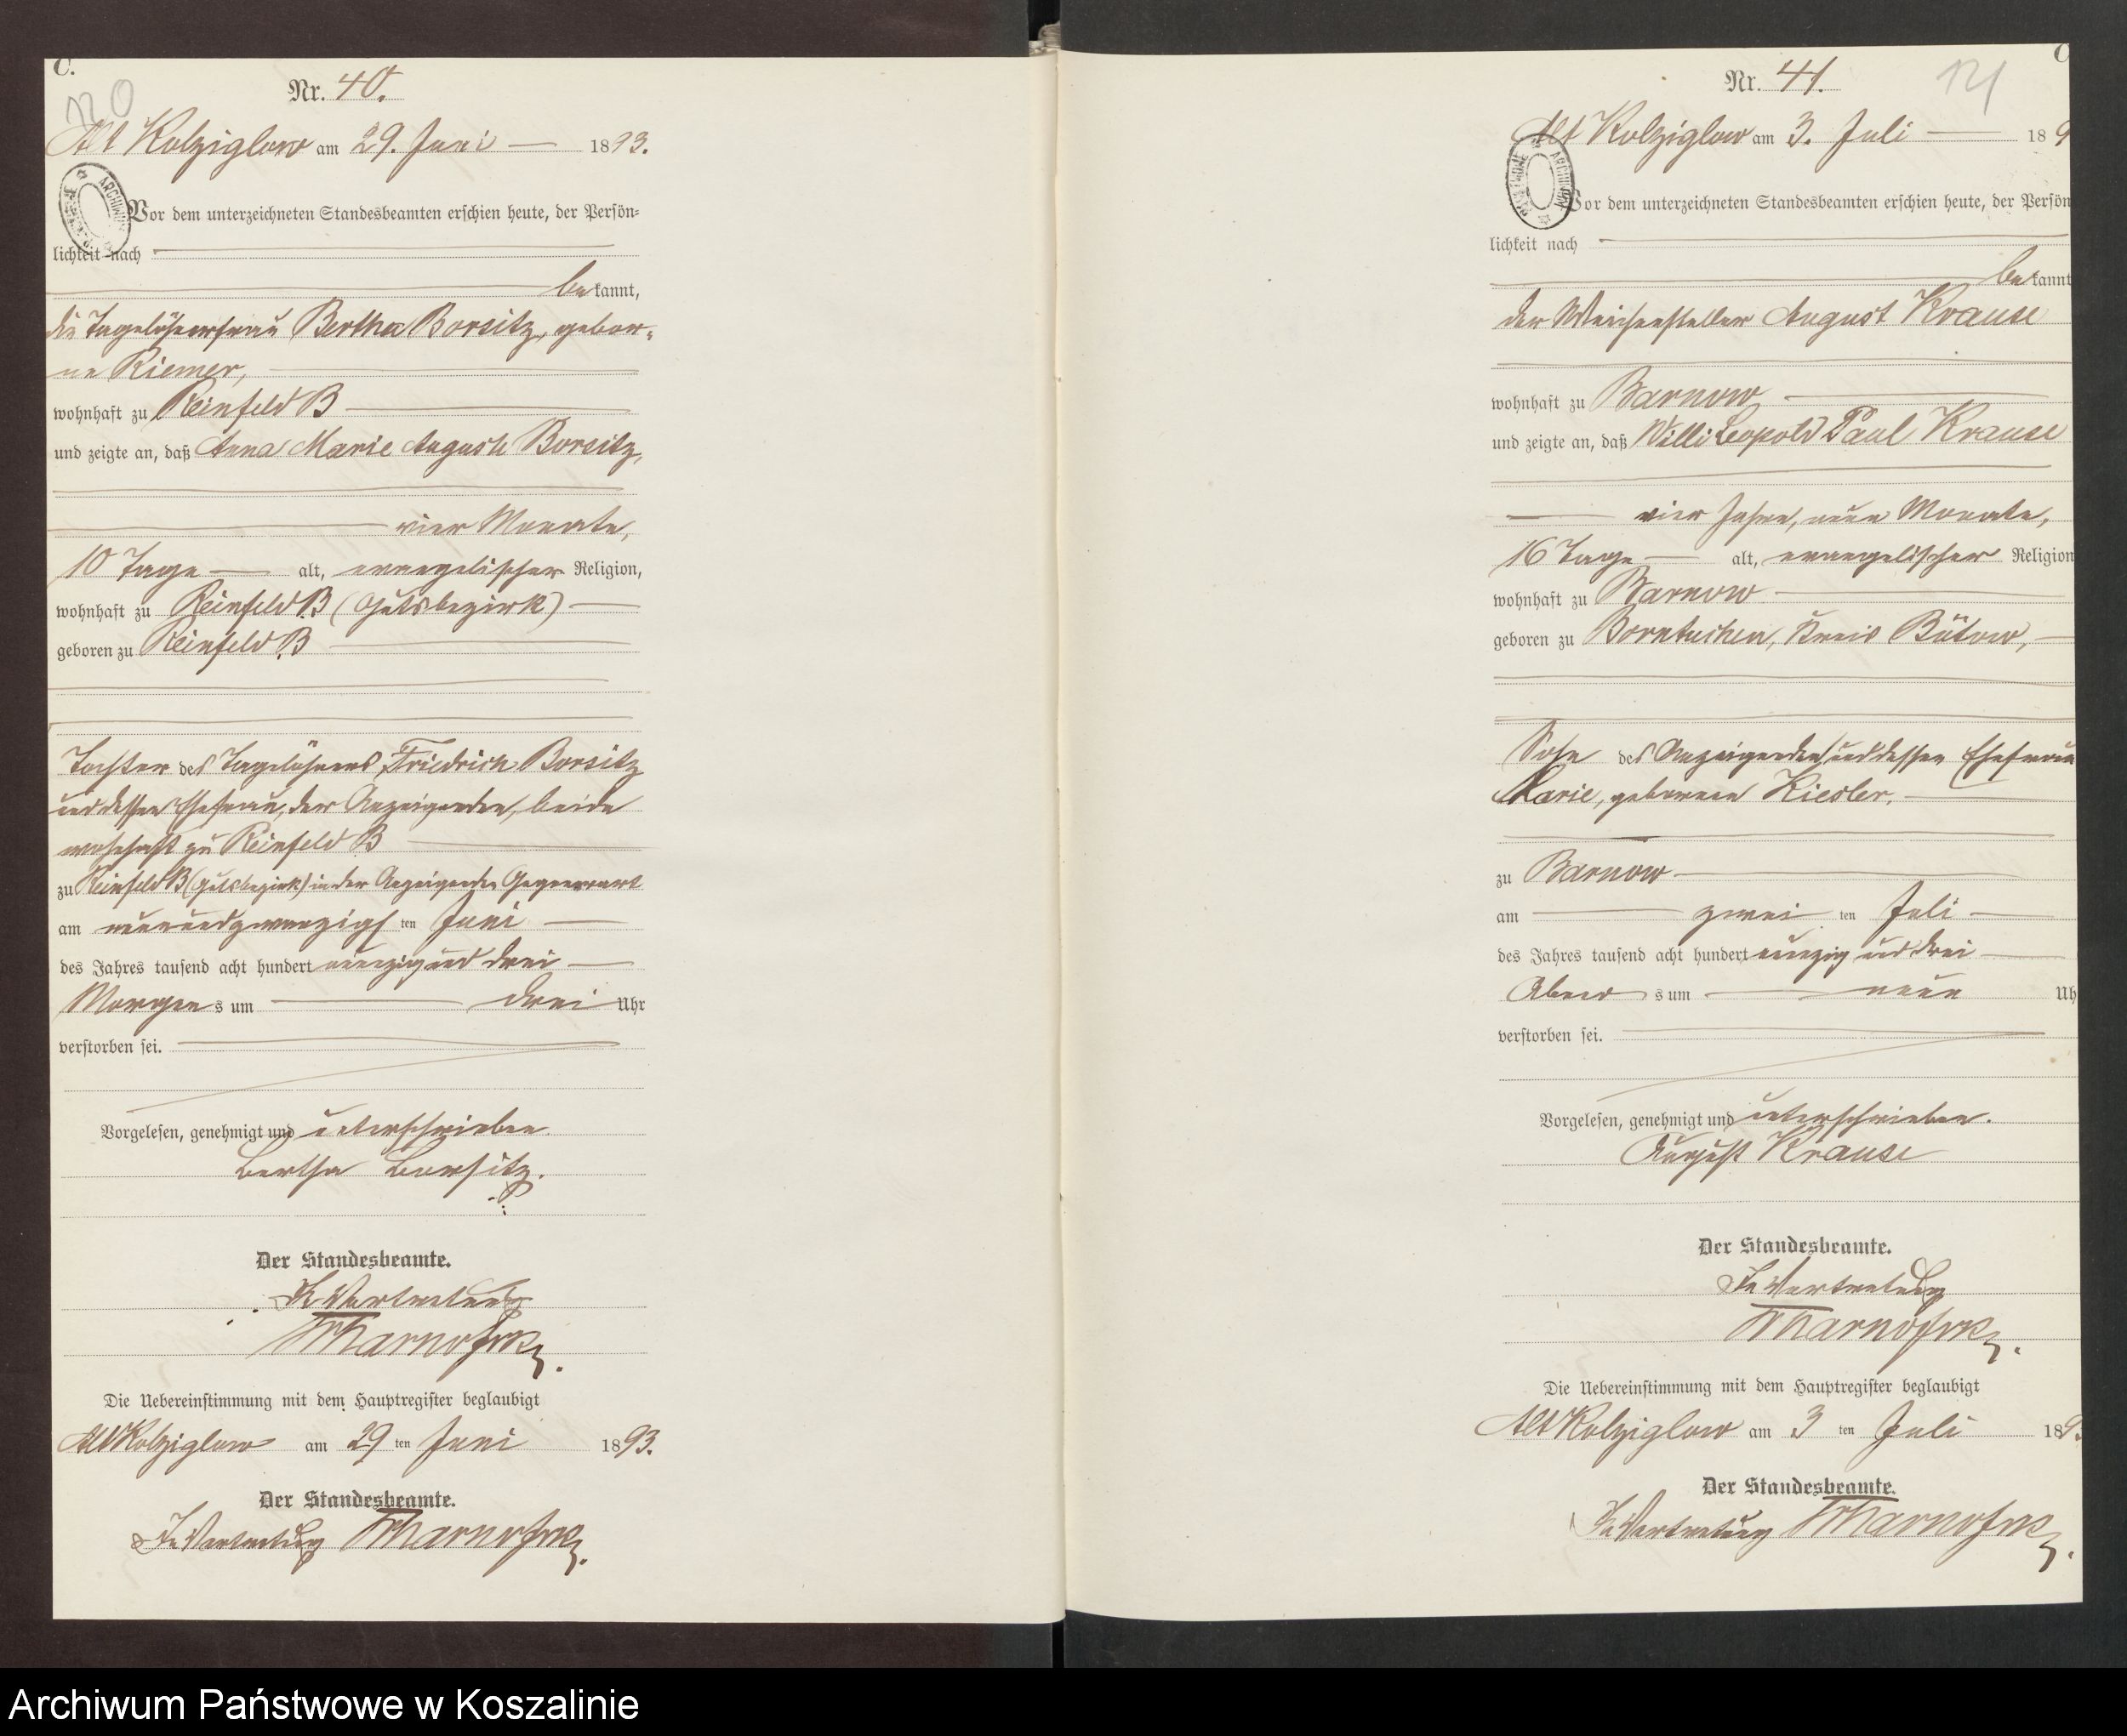 C.
120
Nr. 40.
Alt Kolziglow am 29. Juni 1893.
ARCHIWUM
Vor dem unterzeichneten Standesbeamten erschien heute, der Persön-
lichkeit nach
bekannt,
die Tagelöhnerfrau Bertha Borsitz, gebor-
ne Riemer,
wohnhaft zu Reinfeld B
und zeigte an, daß Anna Marie Auguste Borsitz,
vier Monate,
10 Tage alt, evangelischer Religion,
wohnhaft zu Reinfeld B (Gutsbezirk)
geboren zu Reinfeld B
Tochter des Tagelöhners Friedrich Borsitz
und dessen Ehefrau, der Anzeigenden, beide
wohnhaft zu Reinfeld B
zu Reinfeld B (Gutsbezirk) in der Anzeigenden Gegenwart
am neunundzwanzigsten Juni
des Jahres tausend acht hundert neunzig und drei
Morgens um drei Uhr
verstorben sei.
Vorgelesen, genehmigt und unterschrieben.
Bertha Borsitz.
Der Standesbeamte.
In Vertretung
Die Uebereinstimmung mit dem Hauptregister beglaubigt
Alt Kolziglow am 29 ten Juni 1893.
Der Standesbeamte.
In Vertretung
C
121
Nr. 41.
Alt Kolziglow am 3. Juli 189
ARCHIWUM PAŃSTWOWE
Vor dem unterzeichneten Standesbeamten erschien heute, der Persön
lichkeit nach
bekannt
der Weichensteller August Krause
wohnhaft zu Barnow
und zeigte an, daß Willi Leopold Paul Krause
vier Jahre, neun Monate,
16 Tage alt, evangelischer Religion
wohnhaft zu Barnow
geboren zu Borntuchen, Kreis Bütow,
Sohn des Anzeigenden und dessen Ehefrau
Marie, geborenen Kiesler.
zu Barnow
am zwei ten Juli
des Jahres tausend acht hundert neunzig und drei
Abends um neun Uh
verstorben sei.
Vorgelesen, genehmigt und unterschrieben.
August Krause
Der Standesbeamte.
In Vertretung
Die Uebereinstimmung mit dem Hauptregister beglaubigt
Alt Kolziglow am 3 ten Juli 189
Der Standesbeamte.
In Vertretung
Archiwum Państwowe w Koszalinie